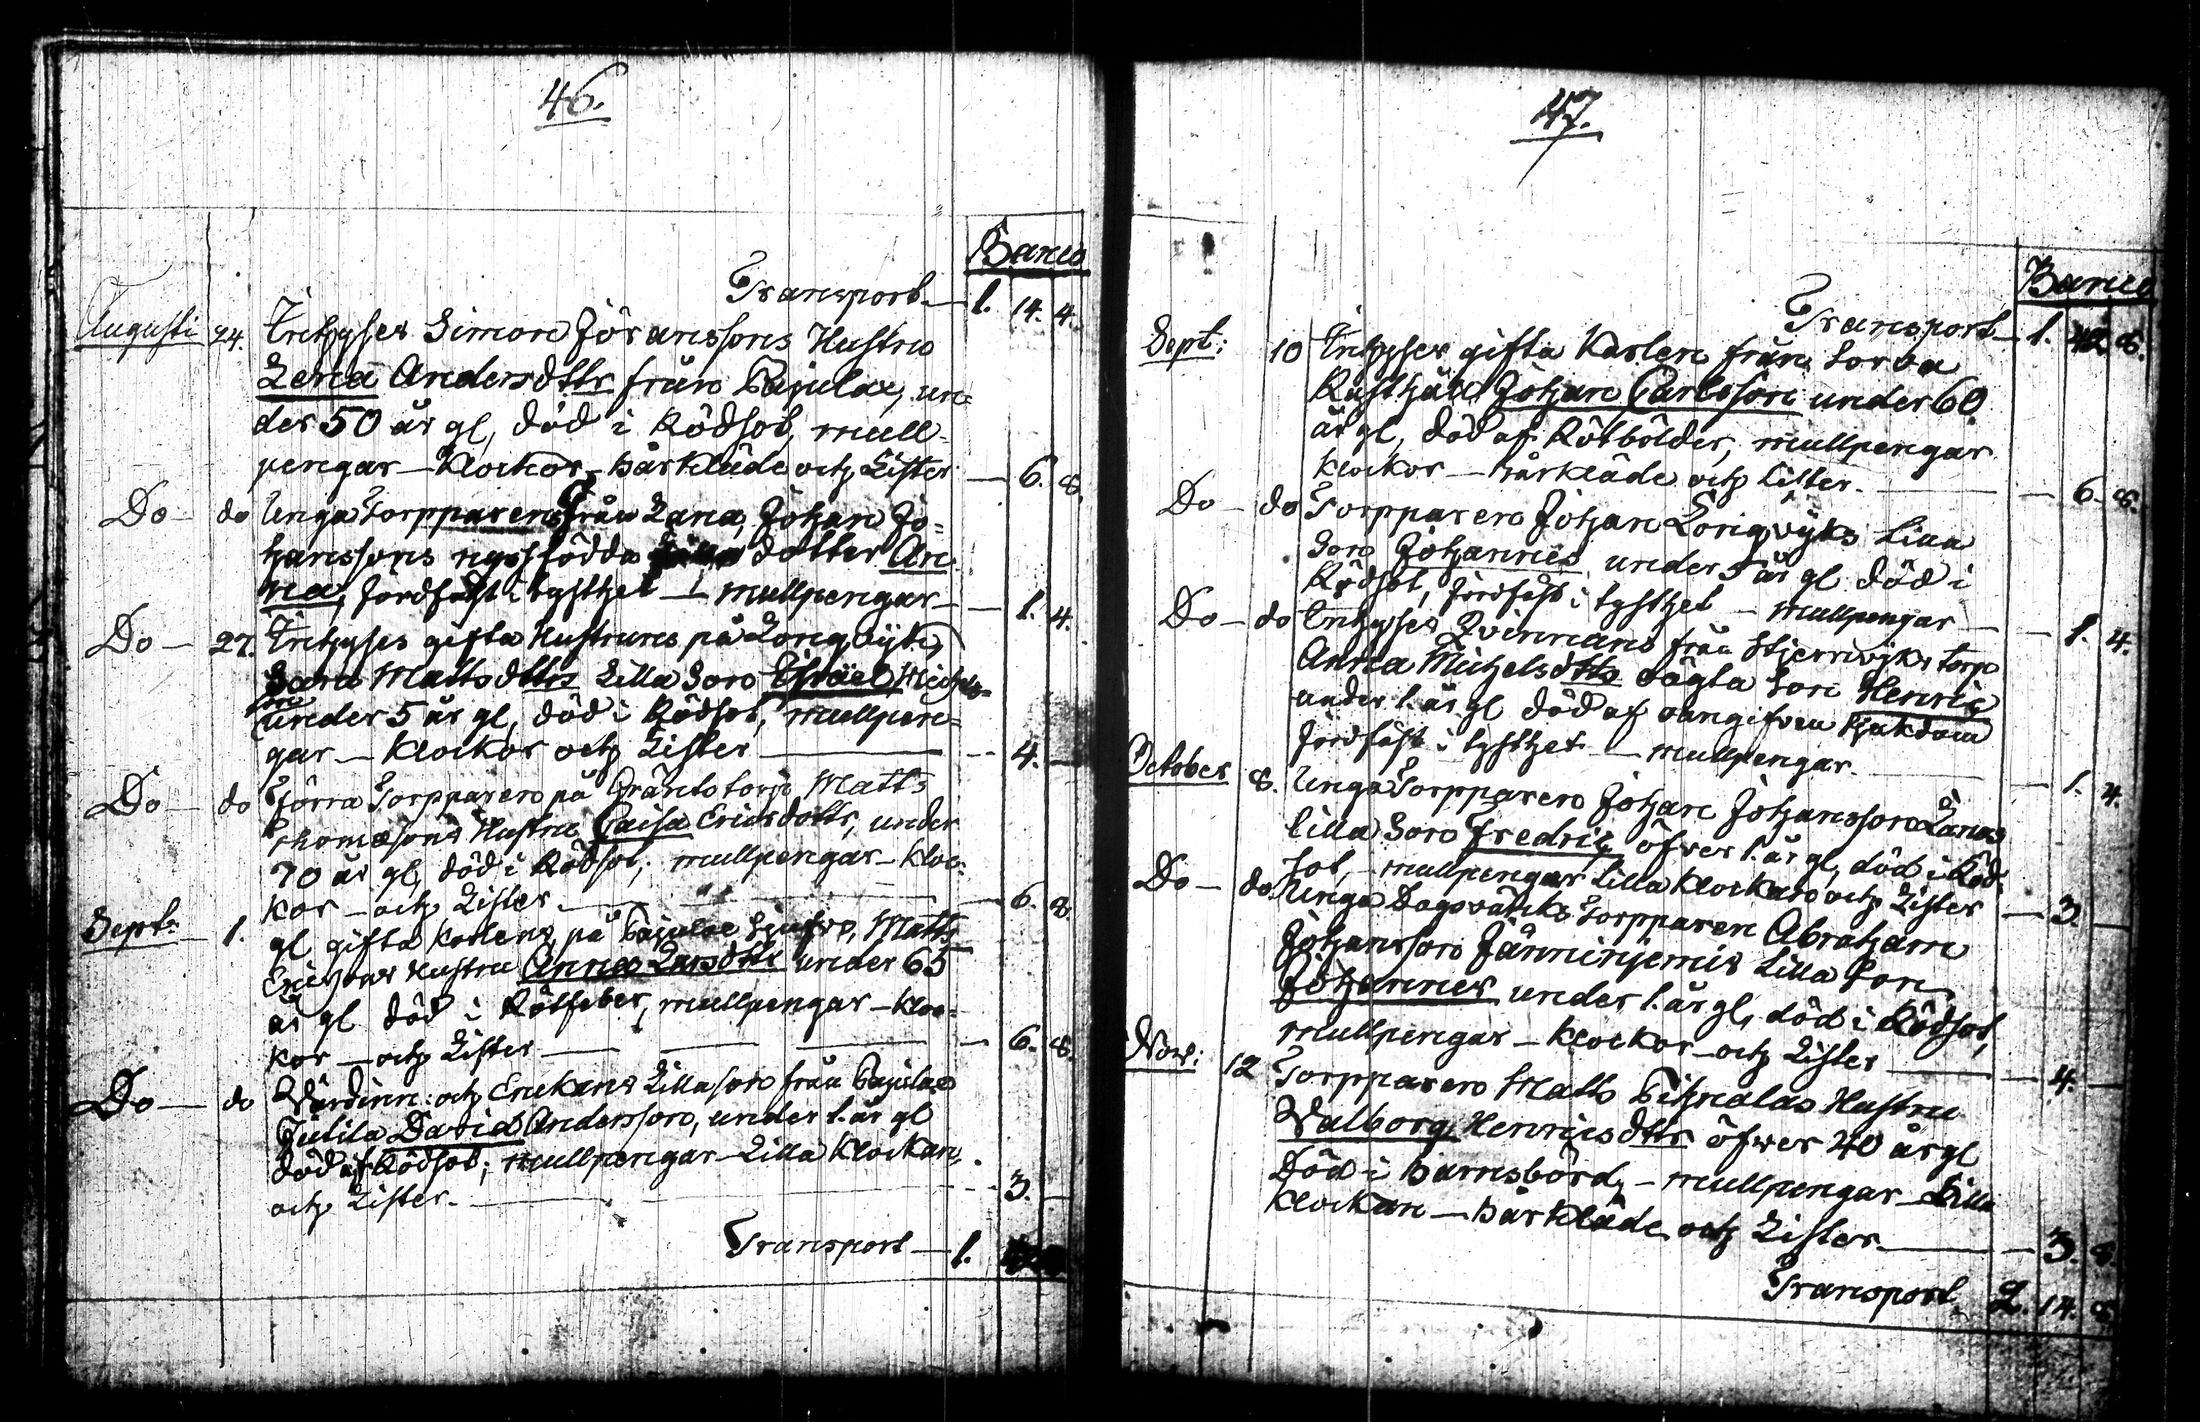 46.
Banco
Transport — 1. 14. 4.
Augusti 24. Inhyses Simon Jöranssons Hustru
Lena Andersdttr från Pajulax, un=
der 50 år gl, död i Rödsot, mull=
pengar — Klockor — bårkläde och Lister — 6. 8.
Do — do Unga Torpparens från Lana, Johan Jo=
hanssons nyssfödda dotter An
na, Jordfäst i tysthet — mullpengar — 1. 4.
Do — 27. Inhyses gifta Hustruns på Longviyk,
Sara Mattsdttrs Lilla Son Isräel Michels=
son
under 5 år gl, död i Rödsot, mullpen=
gar — Klockor och Lister — 4. —
Do — do Förra Torpparen på torp Matts
Thomæsons Hustru Caisa Ericsdottr, under
70 år gl, död i Rödsot; mullpengar — Kloc=
kor — och Lister — 6. 8.
Sept: — 1. gl gifta Karlens, på Matts
Ericsons Hustru Anna Larsdttr under 65
år gl död i Rötfeber, mullpengar — Kloc=
kor — och Lister — 6. 8.
Do — do Värdinn: och Enckans Lilla son från Pajulax
Julila David Andersson, under 1. år gl
död af Rödsot; mullpengar — Lilla Klockan,
och Lister. — 3. —
Transport — 1.
47.
Banco
Transport — 1. 42. 8.
Sept: 10 Inhyses gifta Karlen från Sorva
Rusthåll Johan Carlsson under 60
år gl, död af Rötbölder, mullpengar
Klockor — bårkläde och Lister. — 6. 8.
Do — do Torpparen Johan Longviyks Lilla
Son Johannes under 5 år gl död i
Rödsot, Jordfäst i tysthet — mullpengar — 1. 4.
Do — do Inhyses Qvinnans från Stjernviyks torp
Anna Michelsdttr oägta Son Henric
under 1. år gl död af oangifven Sjukdom
Jordfäst i tysthet — mullpengar. — 1. 4.
October 8. Unga Torpparen Johan Johansson Lanas
Lilla Son Fredric öfver 1. år gl, död i Röd=
sot, — mullpengar Lilla Klockan och Lister — 3. —
Do — do Unga Torpparen Abraham
Johansson Lilla Son
Johannes under 1. år gl, död i Rödsot,
mullpengar — Klockor — och Lister — 4. —
Nov: 12 Torpparen Matts Hustru
Valborg Henricsdttr öfver 40 år gl
Död i Barnsbörd, — mullpengar — Lilla
Klockan — bårkläde och Lister — 3. 8.
Transport — 2. 14. 8.